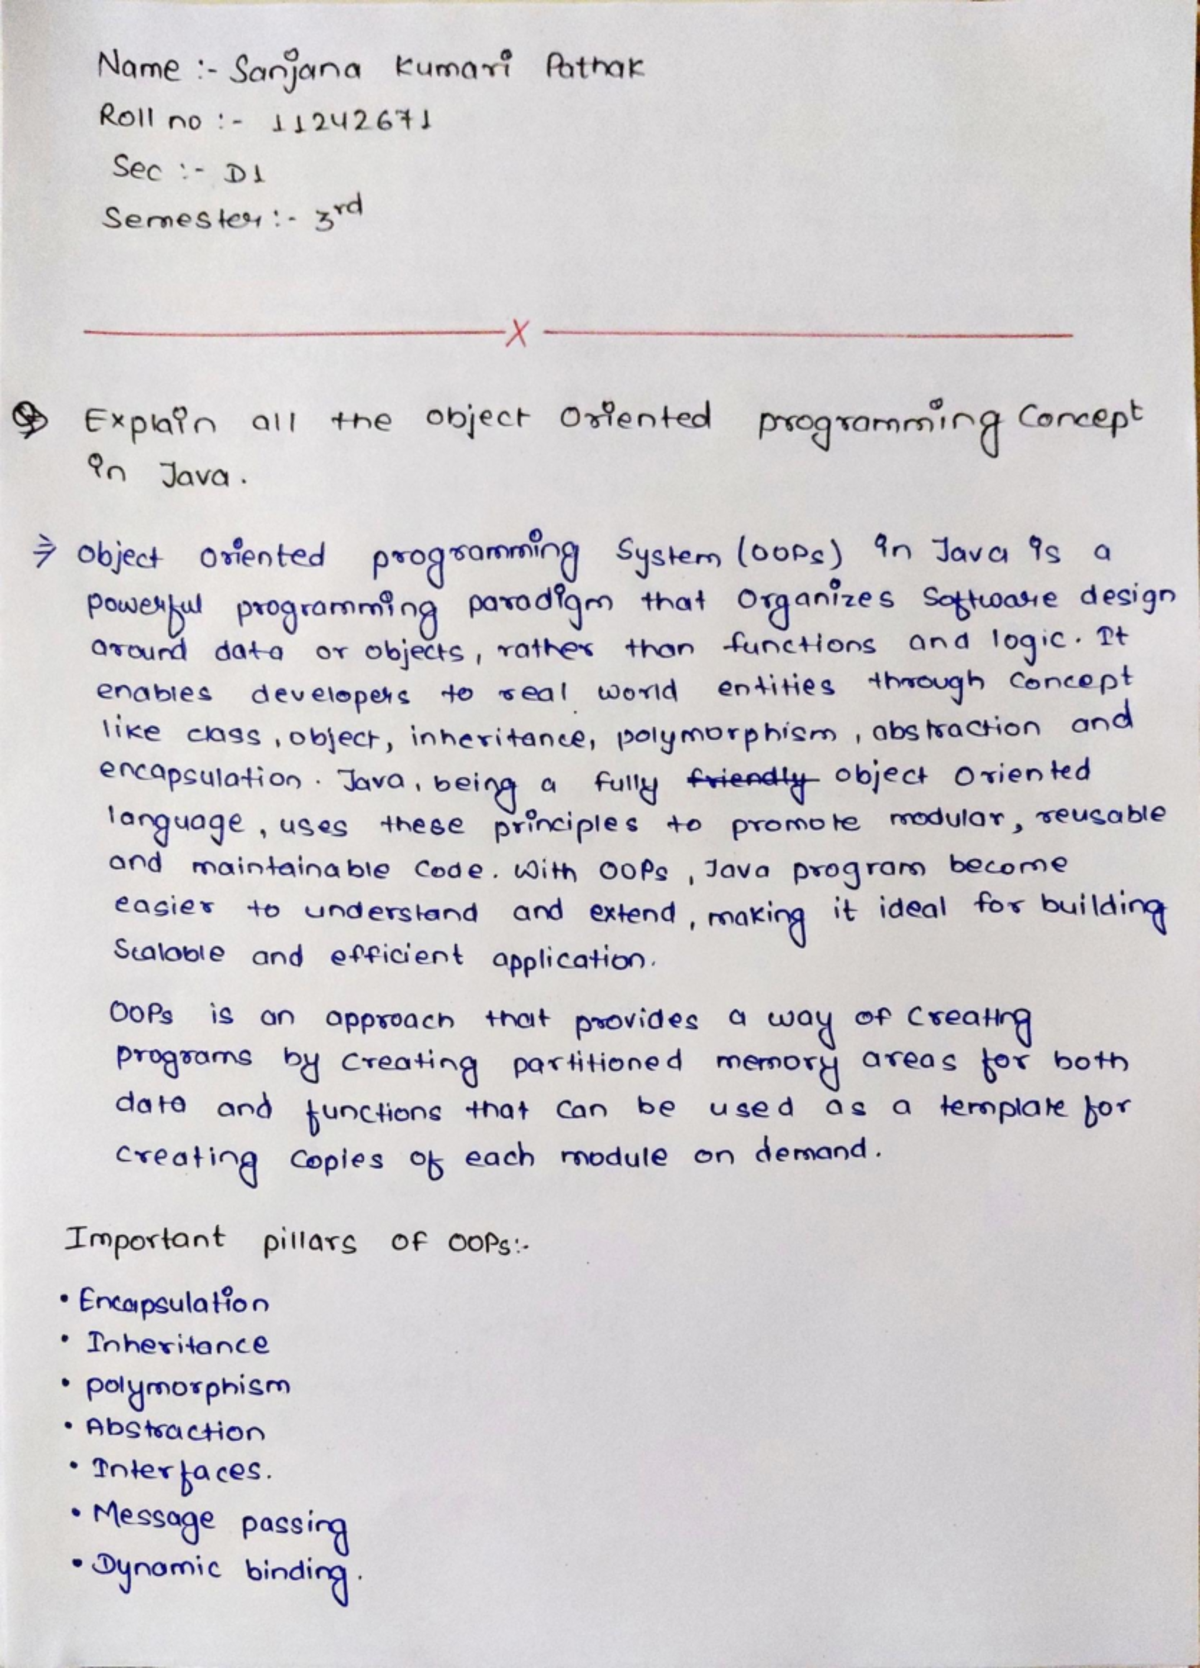 Name :- Sanjana Kumari Pathak
Roll no :- 11242671
Sec :- D1
Semester :- 3rd
X
Q Explain all the object Oriented programming Concept
in Java.
⇒ Object oriented programming System (OOPs) in Java is a
powerful programming paradigm that Organizes Software design
around data or objects, rather than functions and logic. It
enables developers to real world entities through concept
like class, object, inheritance, polymorphism, abstraction and
encapsulation. Java, being a fully friendly object Oriented
language, uses these principles to promote modular, reusable
and maintainable code. With OOPs, Java program become
easier to understand and extend, making it ideal for building
Scalable and efficient application.
OOPs is an approach that provides a way of Creating
programs by creating partitioned memory areas for both
data and functions that can be used as a template for
creating copies of each module on demand.
Important pillars of OOPs:-
• Encapsulation
• Inheritance
• polymorphism
• Abstraction
• Interfaces.
• Message passing
• Dynamic binding.